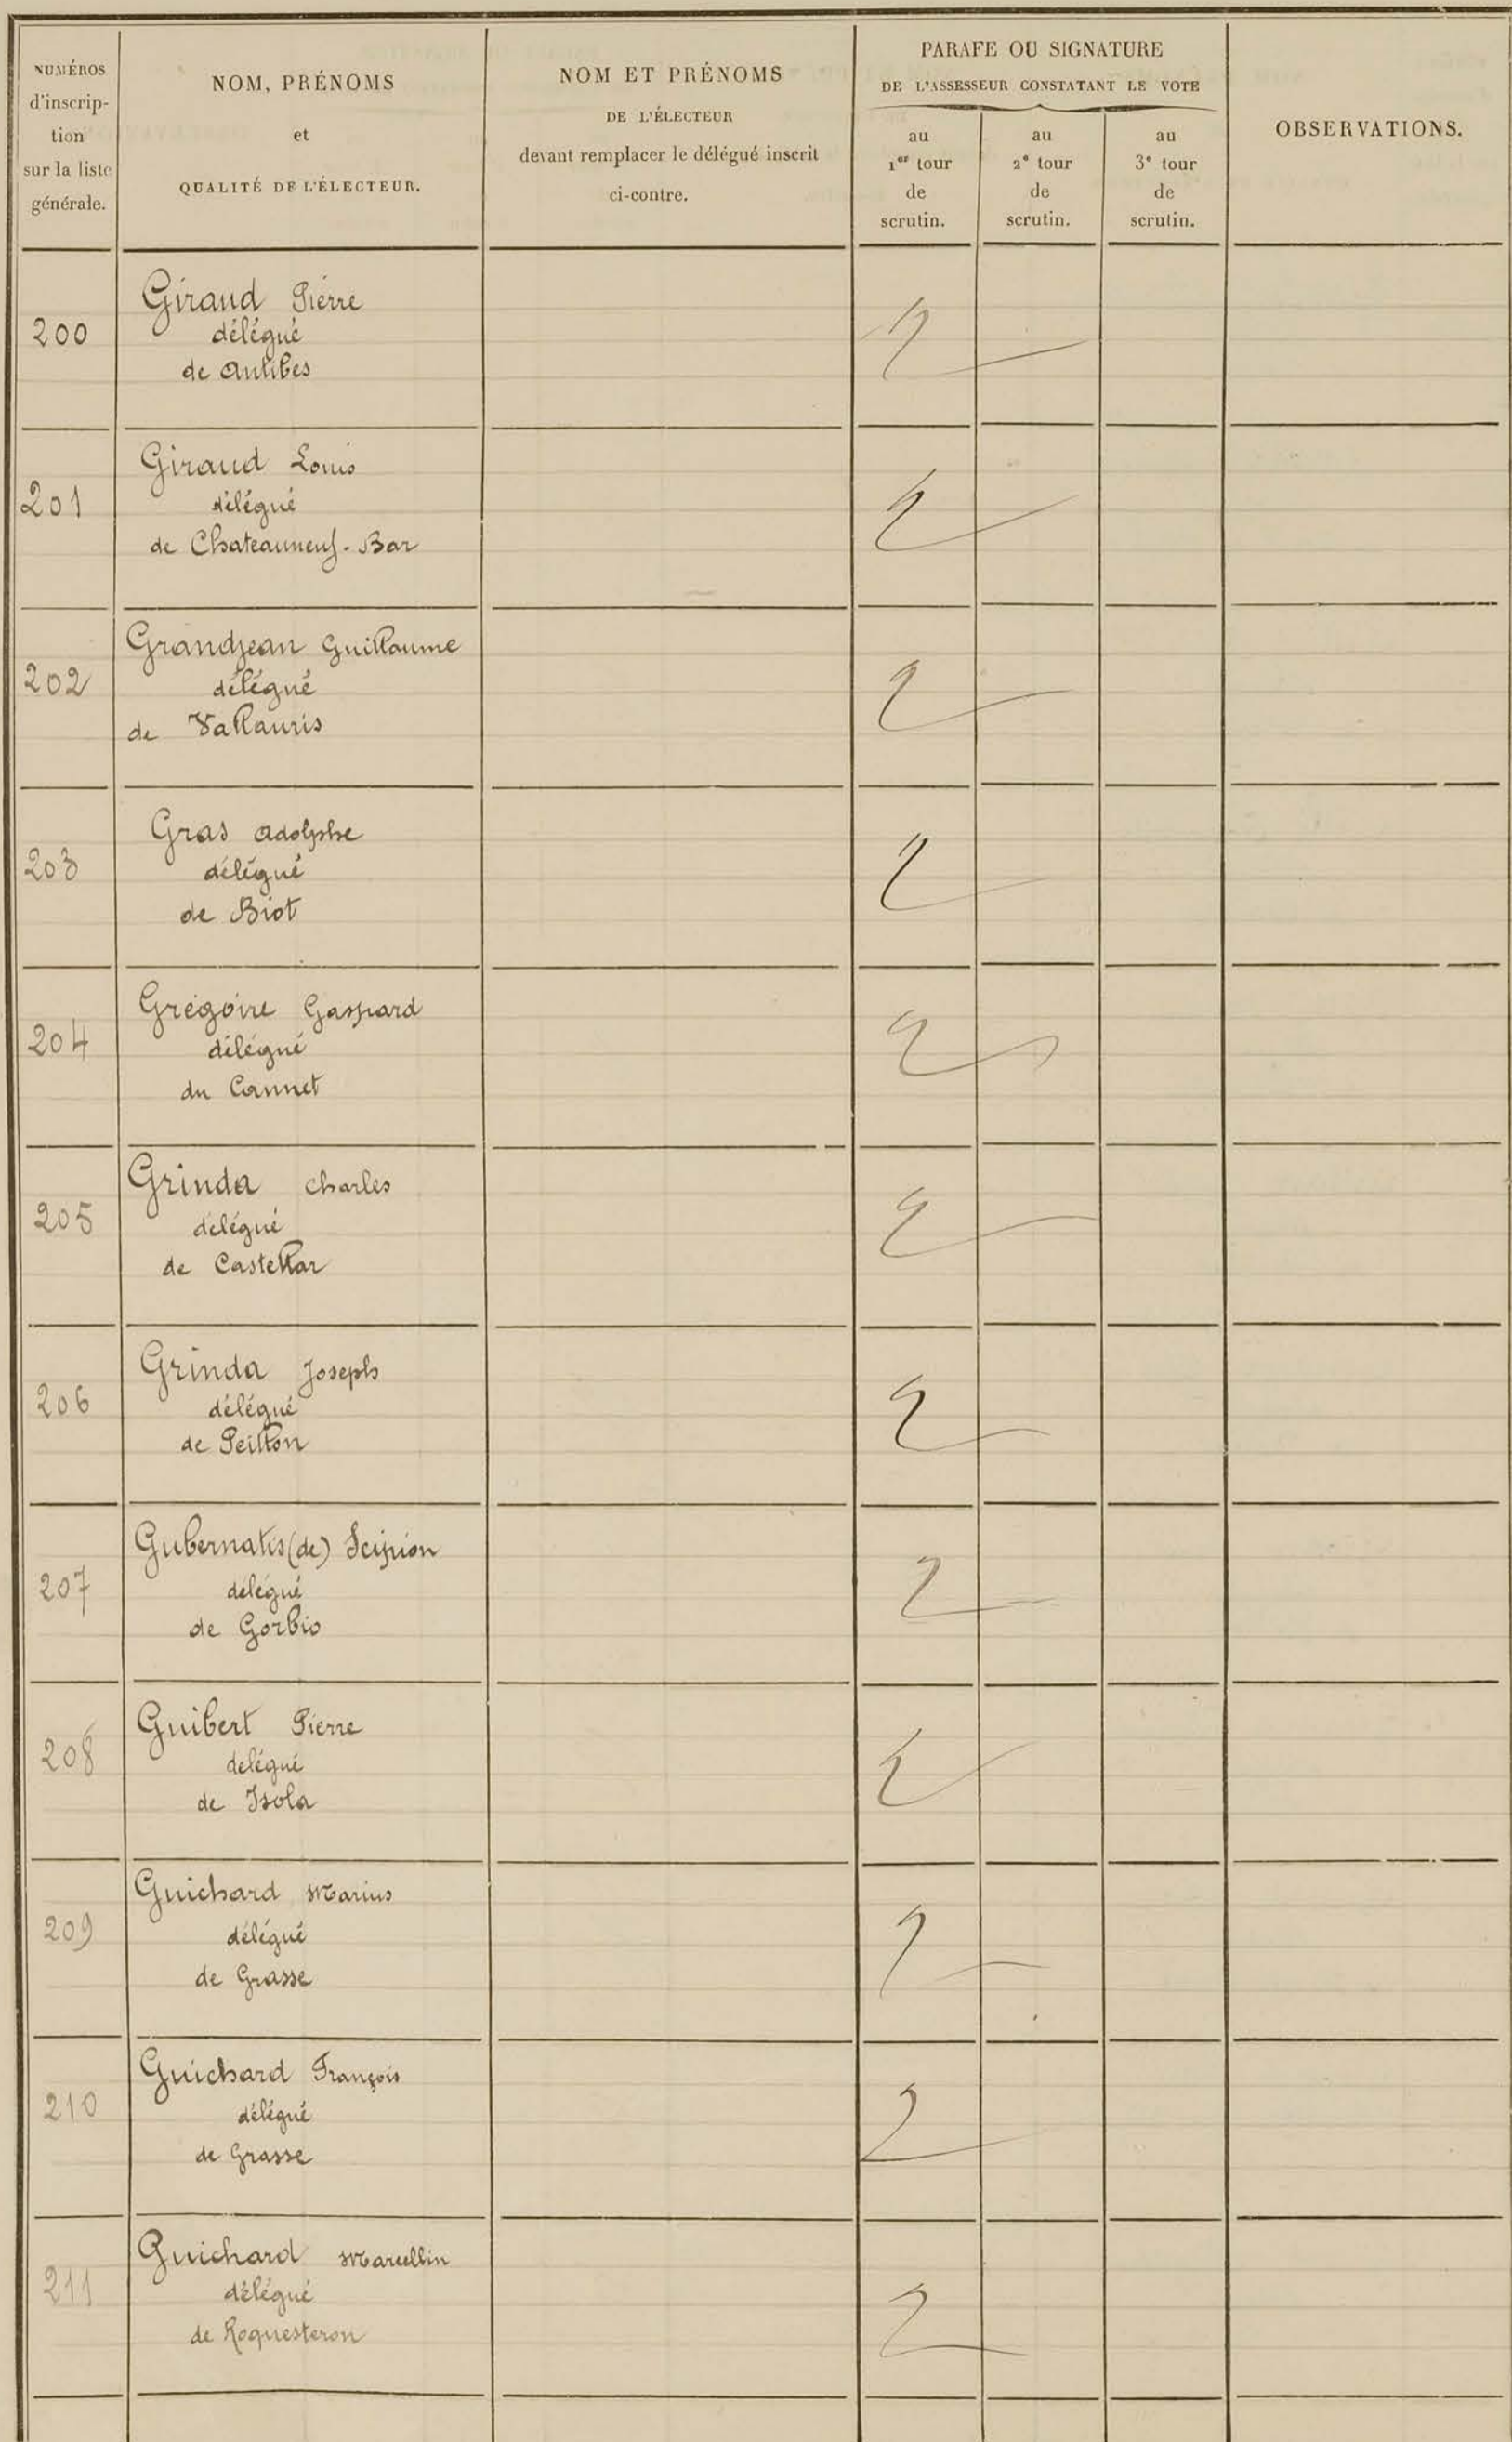 NUMÉROS
d'inscrip-
tion
sur la liste
générale.
NOM, PRÉNOMS
et
QUALITÉ DE L'ÉLECTEUR.
NOM ET PRÉNOMS
DE L'ÉLECTEUR
devant remplacer le délégué inscrit
ci-contre.
PARAFE OU SIGNATURE
DE L'ASSESSEUR CONSTATANT LE VOTE
au
1er tour
de
scrutin.
au
2e tour
de
scrutin.
au
3e tour
de
scrutin.
OBSERVATIONS.
200
Giraud Pierre
délégué
de Antibes
201
Giraud Louis
délégué
de Chateauneuf-Bar
202
Grandjean Guillaume
délégué
de Vallauris
203
Gras Adolphe
délégué
de Biot
204
Grégoire Gaspard
délégué
du Cannet
205
Grinda Charles
délégué
de Castellar
206
Grinda Joseph
délégué
de Peillon
207
Gubernatis (de) Scipion
délégué
de Gorbio
208
Guibert Pierre
délégué
de Isola
209
Guichard Marius
délégué
de Grasse
210
Guichard François
délégué
de Grasse
211
Guichard Marcellin
délégué
de Roquesteron